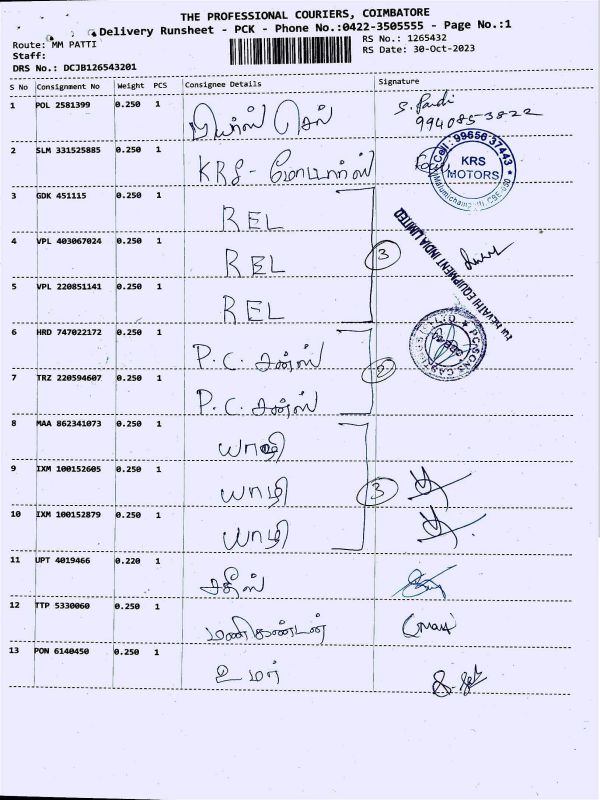 THE PROFESSIONAL COURIERS, COIMBATORE
Delivery Runsheet - PCK - Phone No.:0422-3505555 - Page No.:1
Route: MM PATTI
RS No.: 1265432
Staff:
RS Date: 30-Oct-2023
DRS No.: DCJB126543201
S No Consignment No Weight PCS Consignee Details Signature
1 POL 2581399 0.250 1 S. Pandi
9940853822
2 SLM 331525885 0.250 1 KRS - மோட்டார்ஸ்
Cell: 99656 37443
KRS
MOTORS
3 GDK 451115 0.250 1 REL
4 VPL 403067024 0.250 1 REL 3
5 VPL 220851141 0.250 1 REL
REVATHI EQUIPMENT INDIA LIMITED
6 HRD 747022172 0.250 1 P.C. சன்ஸ்
2
7 TRZ 220594607 0.250 1 P.C. சன்ஸ்
8 MAA 862341073 0.250 1 யாழி
9 IXM 100152605 0.250 1 யாழி 3
10 IXM 100152879 0.250 1 யாழி
11 UPT 4019466 0.220 1 சதீஸ்
12 TTP 5330060 0.250 1 மணிகண்டன்
13 PON 6140450 0.250 1 உமர்